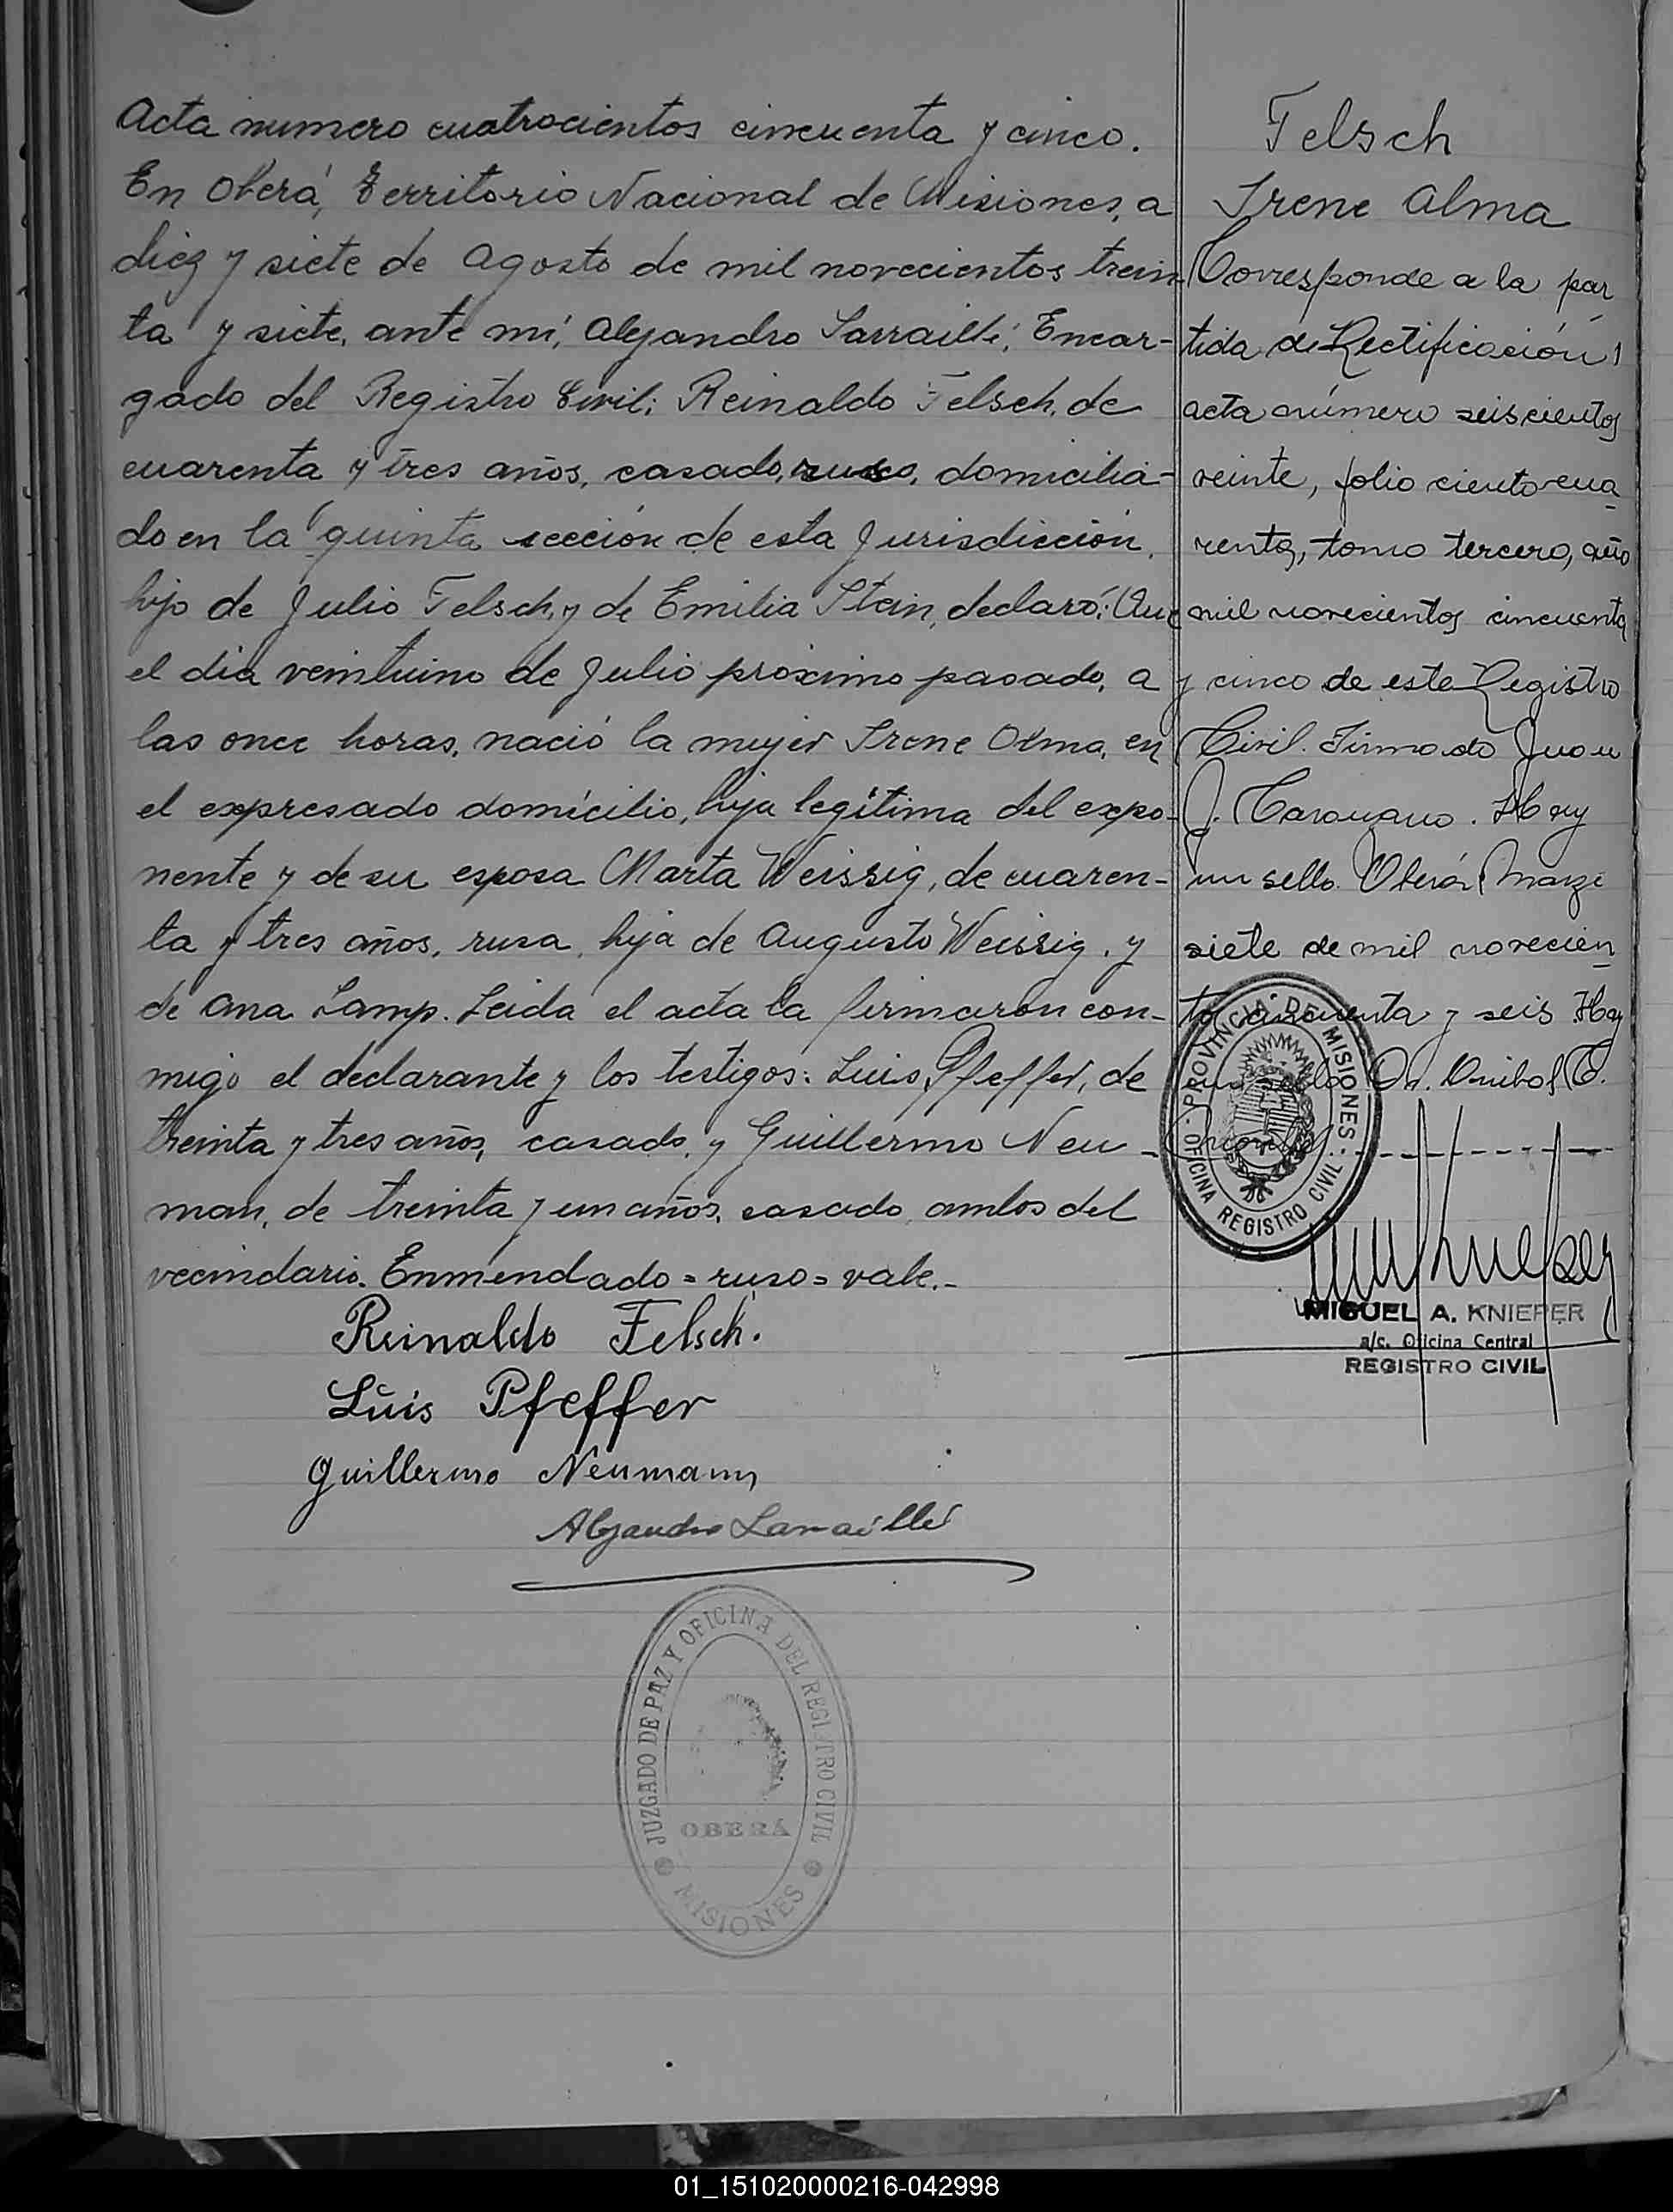 Acta numero cuatrocientos cincuenta y cinco.
En Oberá, Territorio Nacional de Misiones, a
diez y siete de Agosto de mil novecientos trein-
ta y siete, ante mí, Alejandro Sarraillé, Encar-
gado del Registro Civil; Reinaldo Felsch, de
cuarenta y tres años, casado, ruso, domicilia-
do en la quinta sección de esta Jurisdicción,
hijo de Julio Felsch, y de Emilia Stein, declaró: Que
el dia veintiuno de Julio próximo pasado, a
las once horas, nació la mujer Irene Olma, en
el expresado domicilio, hija legítima del expo-
nente y de su esposa Marta Weissig, de cuaren-
ta y tres años, rusa, hija de Augusto Weissig, y
de Ana Lamp. Leida el acta la firmaron con-
migo el declarante y los testigos: Luis Pfeffer, de
treinta y tres años, casado, y Guillermo Neu-
man, de treinta y un años, casado, ambos del
vecindario. Enmendado = ruso = vale.-
Reinaldo Felsch.
Luis Pfeffer
Guillermo Neumann
Alejandro Sarraillé
JUZGADO DE PAZ Y OFICINA DEL REGISTRO CIVIL
OBERÁ
MISIONES
Felsch
Irene Alma
Corresponde a la par
tida de Rectificación
acta número seiscientos
veinte, folio ciento cua
renta, tomo tercero, año
mil novecientos cincuenta
y cinco de este Registro
Civil. Firmado Juan
J. Hay
un sello. Oberá, Marzo
siete de mil novecien
tos cincuenta y seis Hay
un sello Dr. Anibal E.
PROVINCIA DE MISIONES
OFICINA REGISTRO CIVIL
MIGUEL A. KNIEPER
a/c. Oficina Central
REGISTRO CIVIL
01_151020000216-042998